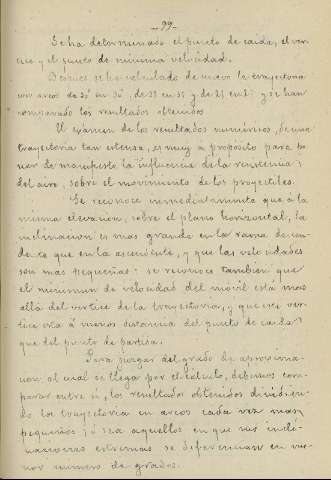 -99-
Se ha determinado el punto de caida, el ver-
tice y el punto de minima velocidad.
Despues se ha calculado de nuevo la trayectoria
con arcos de en y de en y de en y se han
comparado los resultados obtenidos
El exámen de los resultados numéricos, de una
trayectoria tan estensa, es muy a propósito para po-
ner de manifiesto la influencia de la resistencia
del aire, sobre el movimiento de los proyectiles.
Se reconoce inmediatamente que a la
misma elevacion, sobre el plano horizontal, la
inclinacion es mas grande en la rama descen-
dente que en la ascendente, y que las velocidades
son mas pequeñas: se reconoce tambien que
el minimun de velocidad del móvil está mas
allá del vertice de la trayectoria, y que este ver-
tice está á menos distancia del punto de caida
que del punto de partida.
Para juzgar del grado de aproxima-
cion al cual se llega por el cálculo, debemos com-
parar entre si, los resultados obtenidos dividien-
do las trayectoria en arcos cada vez mas
pequeños; ó sea aquellos en que sus incli-
naciones estremas se diferencian en me-
nor numero de grados.